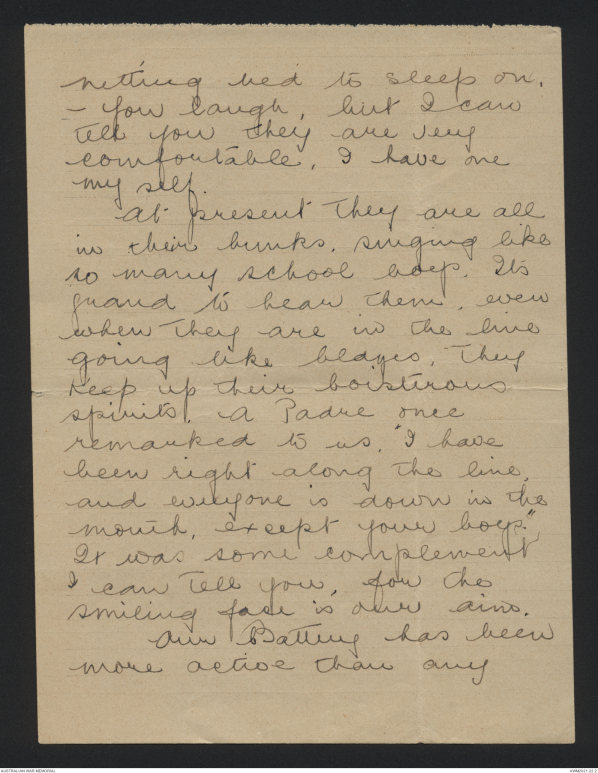 netting bed to sleep on.
- You laugh, but I can
tell you they are very
comfortable, I have one
my self.
At present they are all
in their bunks, singing like
so many school boys. Its
grand to hear them, even
when they are in the line
going like blazes, They
keep up their boistirous
spirits. A Padre once
remarked to us, "I have
been right along the line,
and everyone is down in the
mouth, except your boys."
It was some complement
I can tell you, for the
smiling face is our aim.
Our Battery has been
more active than any
AUSTRALIAN WAR MEMORIAL
AWM2021.22.2